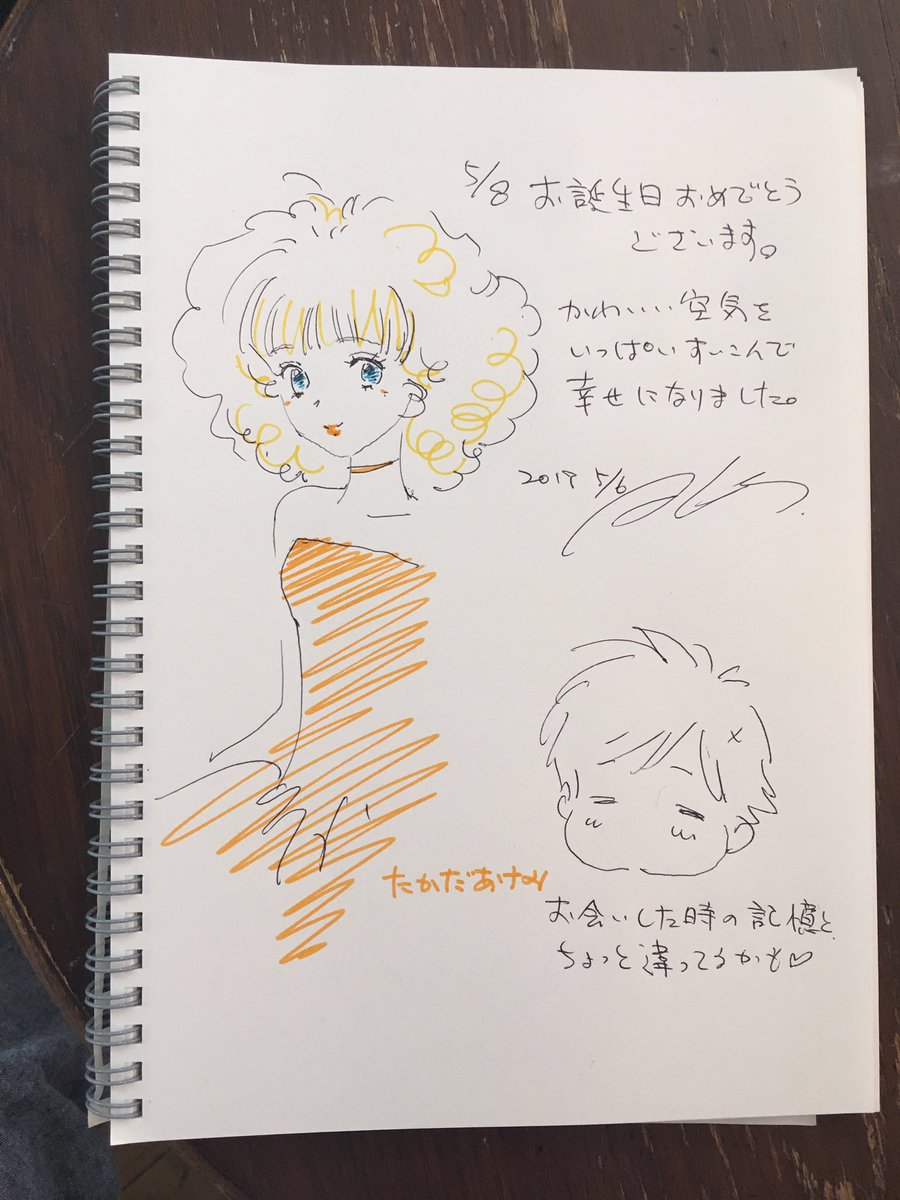 5/8 お誕生日おめでとう
ございます。
かわいい空気を
いっぱいすいこんで
幸せになりました。
2017 5/6
たかだあけ
お会いした時の記憶と
ちょっと違ってるかも♡